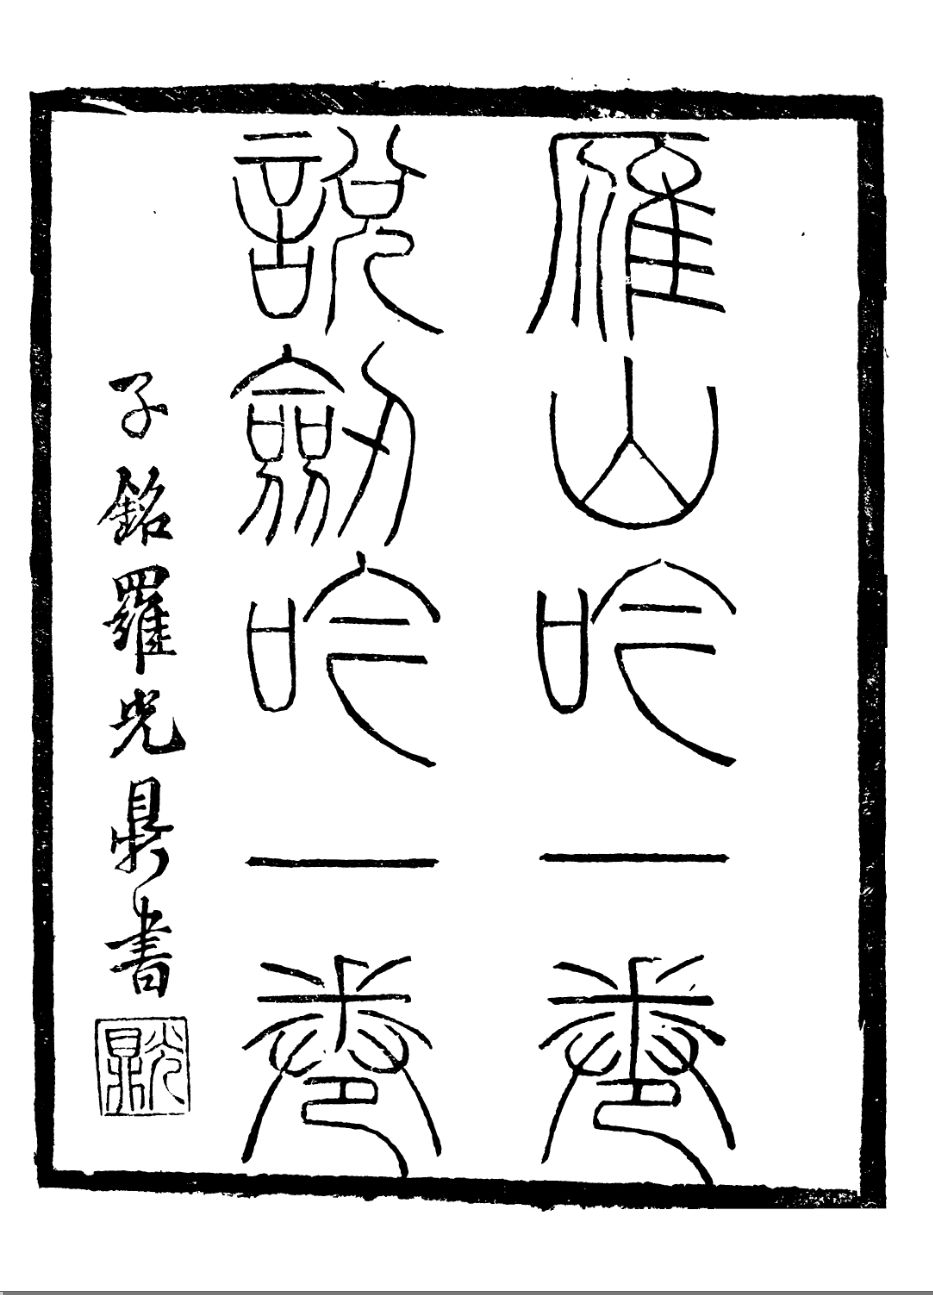 雁山吟一卷
說劒吟一卷
子銘羅光鼎書
光鼎